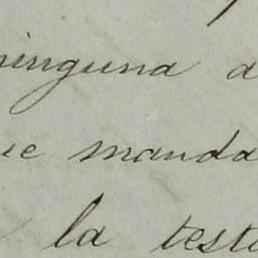 ninguna a
ue manda
la testa